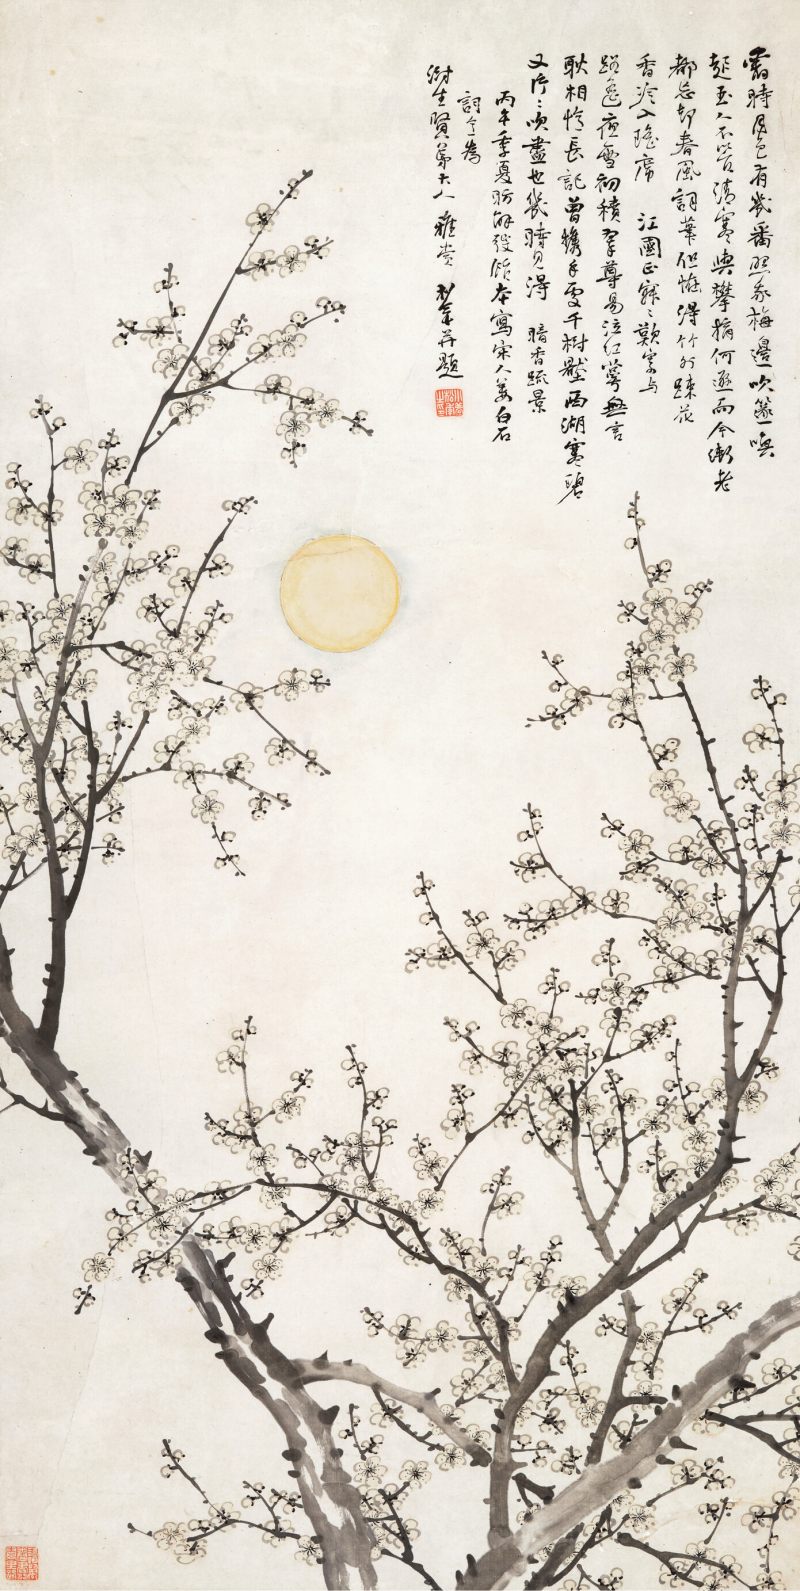 舊時月色有幾番照我梅邊吹篴喚
起玉人不管清寒與攀摘何遜而今漸老
都忘卻春風詞筆但恠得竹外踈花
香冷入瑤席 江國正寂〻歎寄与
路遙夜雪初積翠尊易泣紅萼無言
耿相憶長記曾攜手處千樹壓西湖寒碧
又片〻吹盡也幾時見得 暗香疏景
丙午季夏 本寫宋人姜白石
詞意為
生賢弟大人雅賞 并題